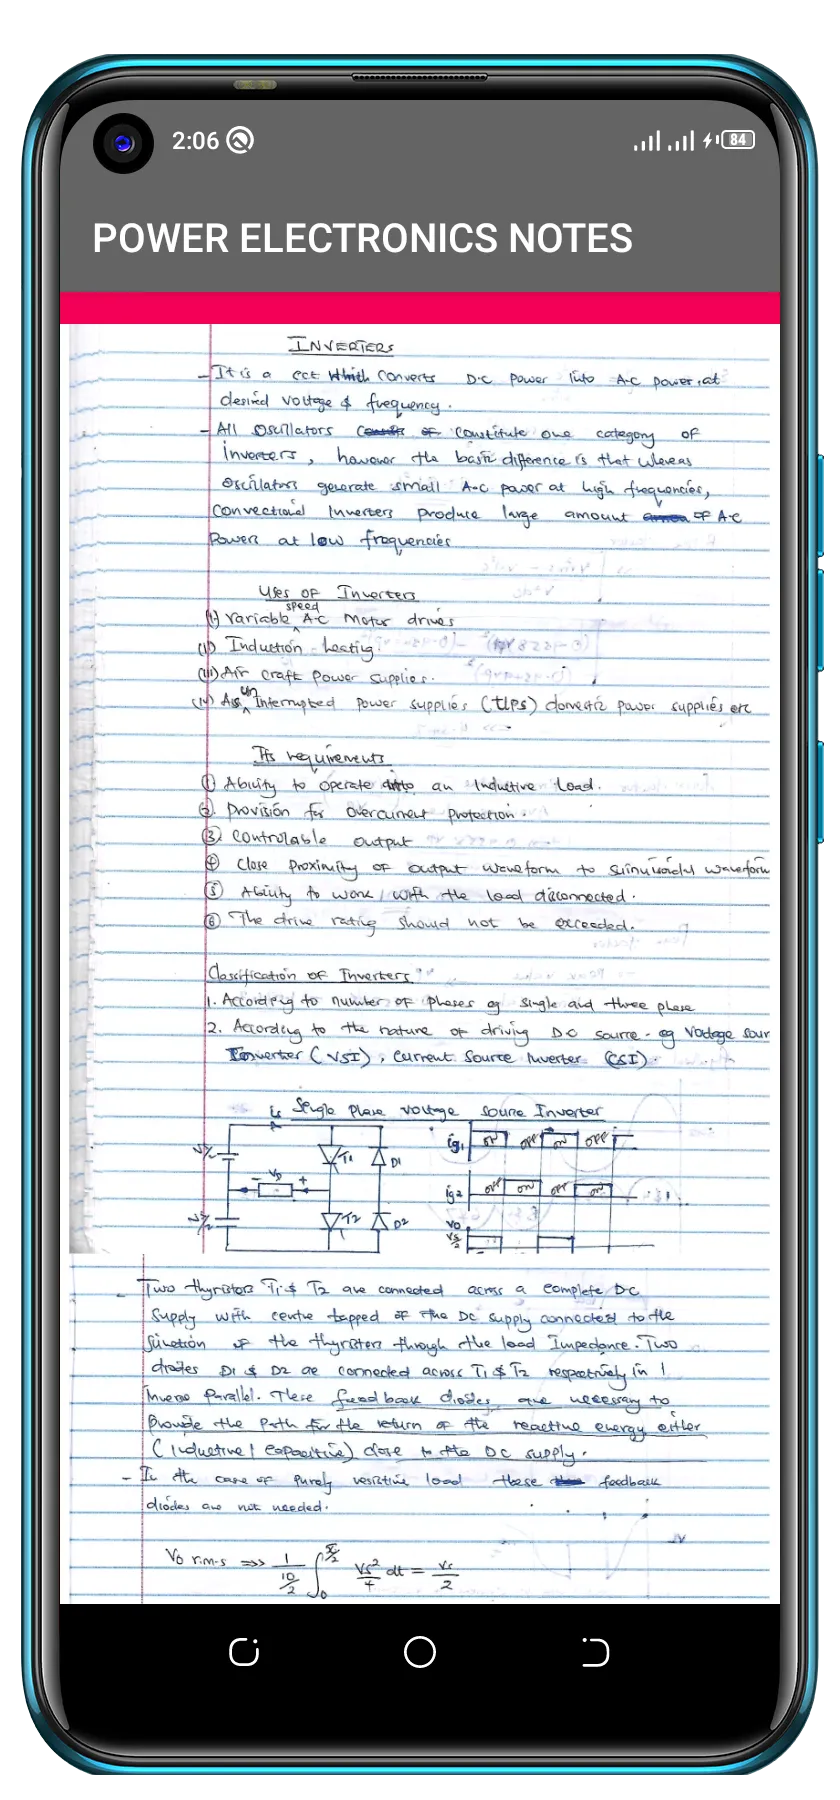 2:06
84
POWER ELECTRONICS NOTES
INVERTERS
- It is a cct which converts D.C power into A.C power, at
desired voltage & frequency.
- All oscillators constitute one category of
inverters, however the basic difference is that whereas
oscillators generate small A.C power at high frequencies,
convectional Inverters produce large amount of A.C
Power at low frequencies
Uses of Inverters
speed
(i) Variable ^ A-C Motor drives
(ii) Induction heating.
(iii) Air craft power supplies.
un
(iv) As ^ Interrupted power supplies (UPS) domestic power supplies etc
Its requirements
① Ability to operate into an Inductive load.
② provision for overcurrent protection.
③ controlable output
④ Close proximity of output waveform to sinusoidal waveform
⑤ Ability to work with the load disconnected.
⑥ The drive rating should not be exceeded.
Classification of Inverters
1. According to number of phases eg single and three phase
2. According to the nature of driving DC source - eg Voltage sour
Inverter (VSI), current source Inverter (CSI).
is Single phase voltage source Inverter
Vs/2 T1 D1 ig1 ON OFF ON OFF
- V0 + ig2 OFF ON OFF ON
Vs/2 T2 D2 V0
Vs/2
- Two thyristors T1 & T2 are connected across a complete DC
supply with centre tapped of the DC supply connected to the
junction of the thyristors through the load Impedance. Two
diodes D1 & D2 are connected across T1 & T2 respectively in
Inverse Parallel. These feedback diodes are necessary to
Provide the path for the return of the reactive energy either
(inductive / capacitive) close to the DC supply.
- In the case of purely resistive load these feedback
diodes are not needed.
V0 r.m.s ⇒ 1 Vs² dt = Vs
2 4 2
0